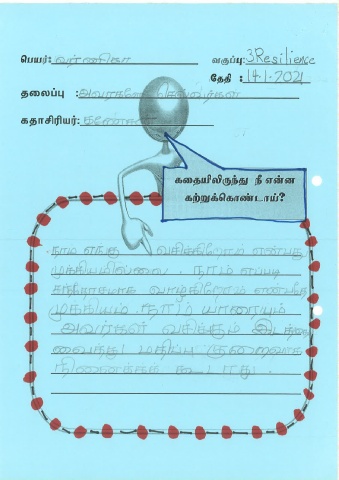 பெயர்: வர்ணிகா
வகுப்பு: 3Resilience
தேதி : 14.1.2021
தலைப்பு :
கதாசிரியர்:
கதையிலிருந்து நீ என்ன
கற்றுக்கொண்டாய்?
நாம் எங்கு வசிக்கிறோம் என்பது
முக்கியமில்லை. நாம் எப்படி
சந்தோசமாக வாழ்கிறோம் என்பதே
முக்கியம். நாம் யாரையும்
அவர்கள் வசிக்கும் இடத்தை
வைத்து மதிப்பு குறைவாக
நினைக்கக் கூடாது.